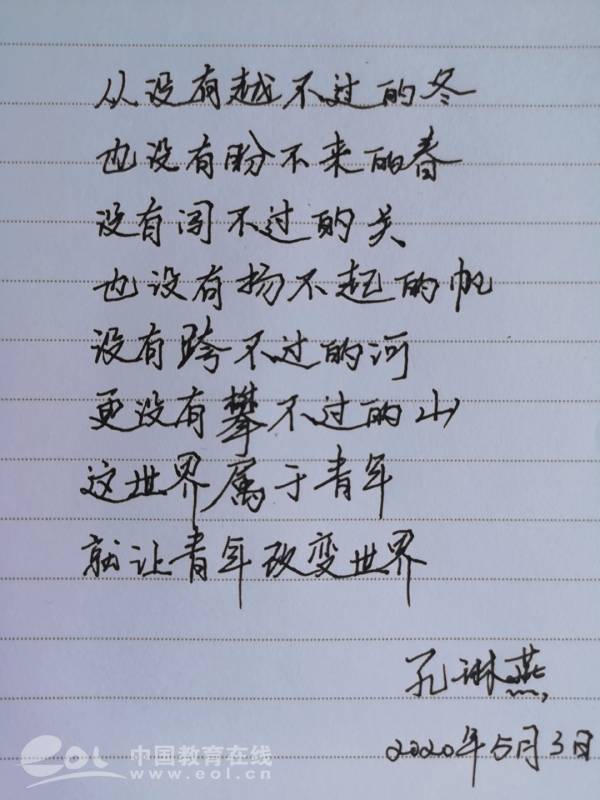 从没有越不过的冬
也没有盼不来的春
没有闯不过的关
也没有扬不起的帆
没有跨不过的河
更没有攀不过的山
这世界属于青年
就让青年改变世界
孔琳燕
2020年5月3日
eol 中国教育在线
www.eol.cn